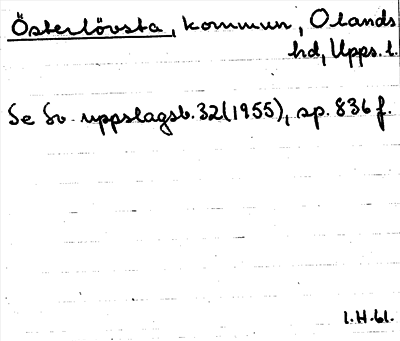 Österlövsta, kommun, Olands
hd, Upps. l.
Se Sv. uppslagsb. 32(1955), sp. 836 f.
1.H.61.